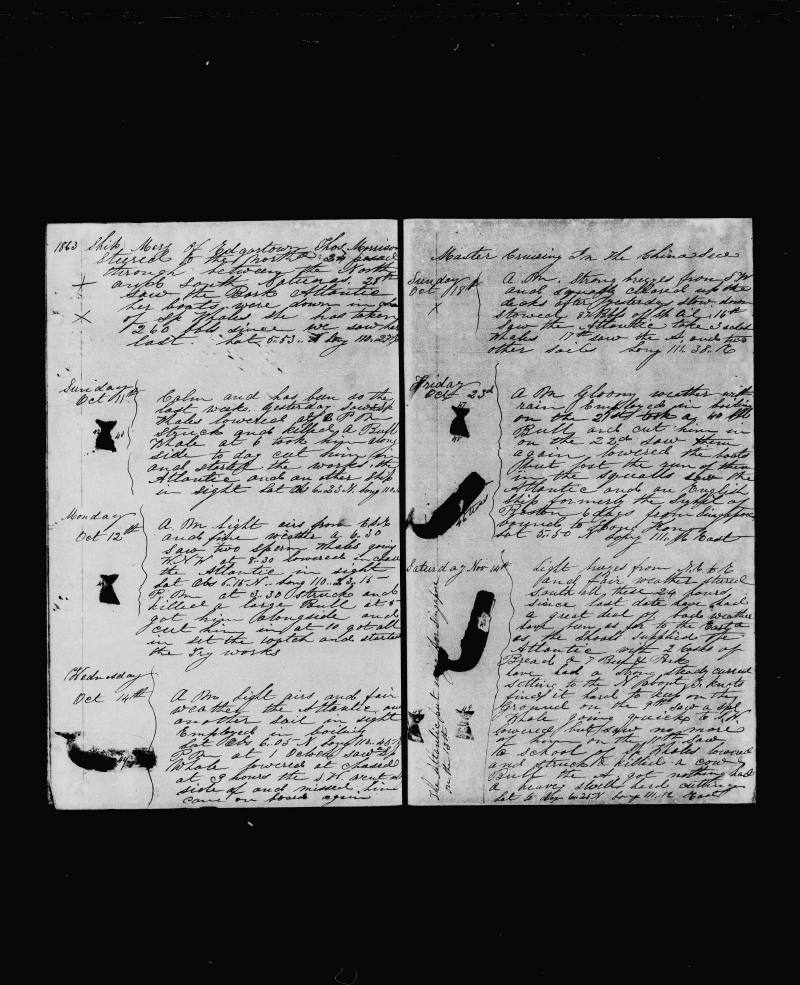 1863 Ship Mary of Edgartown Thos Morrison
Steered to the North 24 passed
through between the North
and South Natunas. 25th
saw the Bark Atlantic
her boats were down in chase
of Sp Whales she has taken
260 bbls since we saw her
last. Lat 5.53. N Long 110.27
Sunday
Oct 11th
Calm and has ben so the
last week. Yesterday saw Sp
Whales lowered at 2 P.Bm
struck and killed A Bull
Whale at 6 took him along
side to day cut him in
and started the works. the
Atlantic and an other Ship
in sight Lat Obs 6..23 N. Long 110.
Monday
Oct 12th
A Bm light airs from ESE
and fine weather a 6.30
saw two Sperm Whales going
W.N.W at 8.30 lowered in chase
the Atlantic in sight
Lat Obs 6..15 N.. Long 110..23.15
P. Bm at 3.30 struck and
killed a large Bull at 5
got him alongside and
cut him in at 10 got all
in set the watch and started
the Try works
Wednesday
Oct 14th
A Bm light airs and fair
weather the Atlantic and
another sail in sight
Employed in boiling
Lat Obs 6.05 N Long 110.45
P.m at 1 Oclock saw Sp
Whale lowered at chased
at 3 hours the S.W. went
side of and missed him
came on board again
Master Cruising In the China Sea
Sunday
Oct 18th
A Bm. Strong breezes from S W
and squally cleared up the
decks after yesterday stow down
stowed 87 Bbls of Sp Oil 16th
Saw the Atlantic take 3 small
Whales 17th saw the A. and two
other sails Long 111.38. E
Friday
Oct 23d
A Bm Gloomy weather with
rain Employed in boiling
on the 21st took a 40 Bbl
Bull and cut him in
on the 22d saw them
again lowered the boats
but lost the run of them
in the squalls saw the
Atlantic and an English
Ship formerly the Syren of
Boston 6 days from Singapore
bound to Hong Kong
Lat 5.50 N Long 111.16 East
Saturday Nov 14th
Light breezes from N.E & E
and fair weather steered
South all these 24 hours
since last date have had
a great deal of bad weather
have been as far to the East
as the shoals supplied the
Atlantic with 2 Casks of
Bread & 7 Beef & Pork
have had a strong steady current
setting to the S about 3 knots
find it hard to keep on the
Ground on the 9th saw a Sp
Whale going quick to S.W.
lowered but saw no more
of him on the saw
to school of Sp Whales lowered
and struck & killed a Cow
Bull the A got nothing had
a heavy swell hard cutting
Lat 5 Nov 6..25 N Long 111.12 East
The Atlantic put away for Singapore
on the 15th